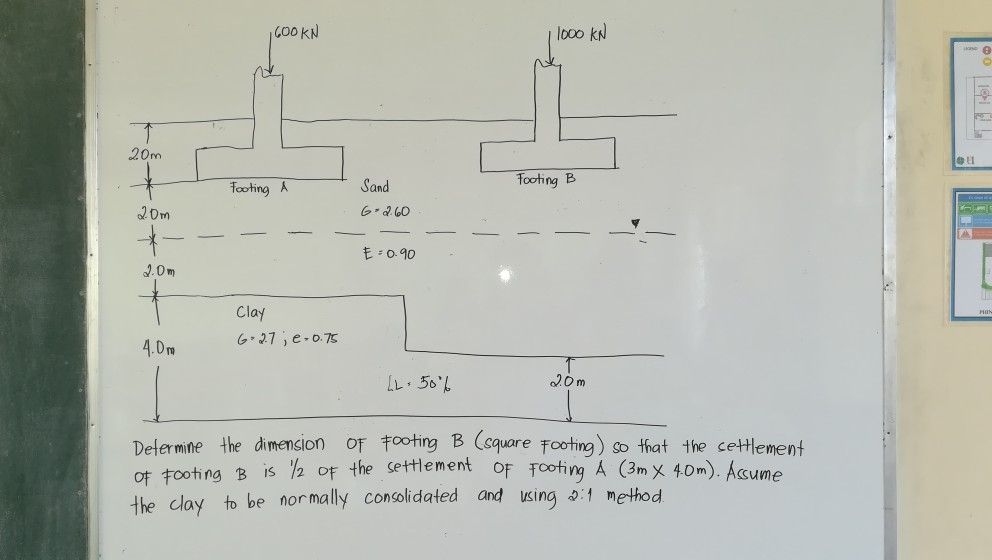 600 KN
1000 KN
2.0m
Footing A
Footing B
Sand
G = 2.60
2.0m
E = 0.90
2.0m
Clay
G = 2.7 ; e = 0.75
4.0m
LL = 50%
2.0m
Determine the dimension of Footing B (square footing) so that the settlement
of footing B is 1/2 of the settlement of Footing A (3m x 4.0m). Assume
the clay to be normally consolidated and using 2:1 method.